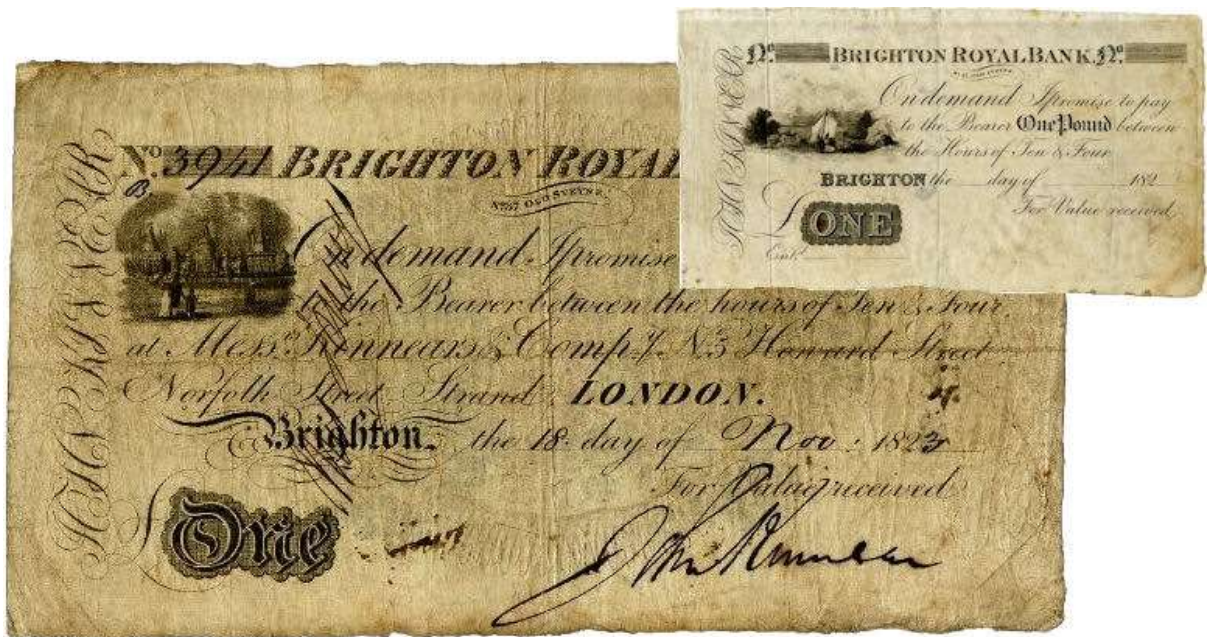 No. 3941 BRIGHTON ROYAL
B,
No. 57 OLD STEYNE.
On demand I promise
the Bearer between the hours of Ten & Four,
at Messrs. Kinnears & Compy. No. 3 Howard Street
Norfolk Street, Strand, LONDON.
Brighton, the 18 day of Nov. 1823
For Value received
£ One
John Kinnear
JOHN KINNEAR
No. BRIGHTON ROYAL BANK. No.
On demand I promise to pay
to the Bearer One Pound between
the Hours of Ten & Four
BRIGHTON the day of 182
For Value received
£ ONE
Entd.
JOHN KINNEAR